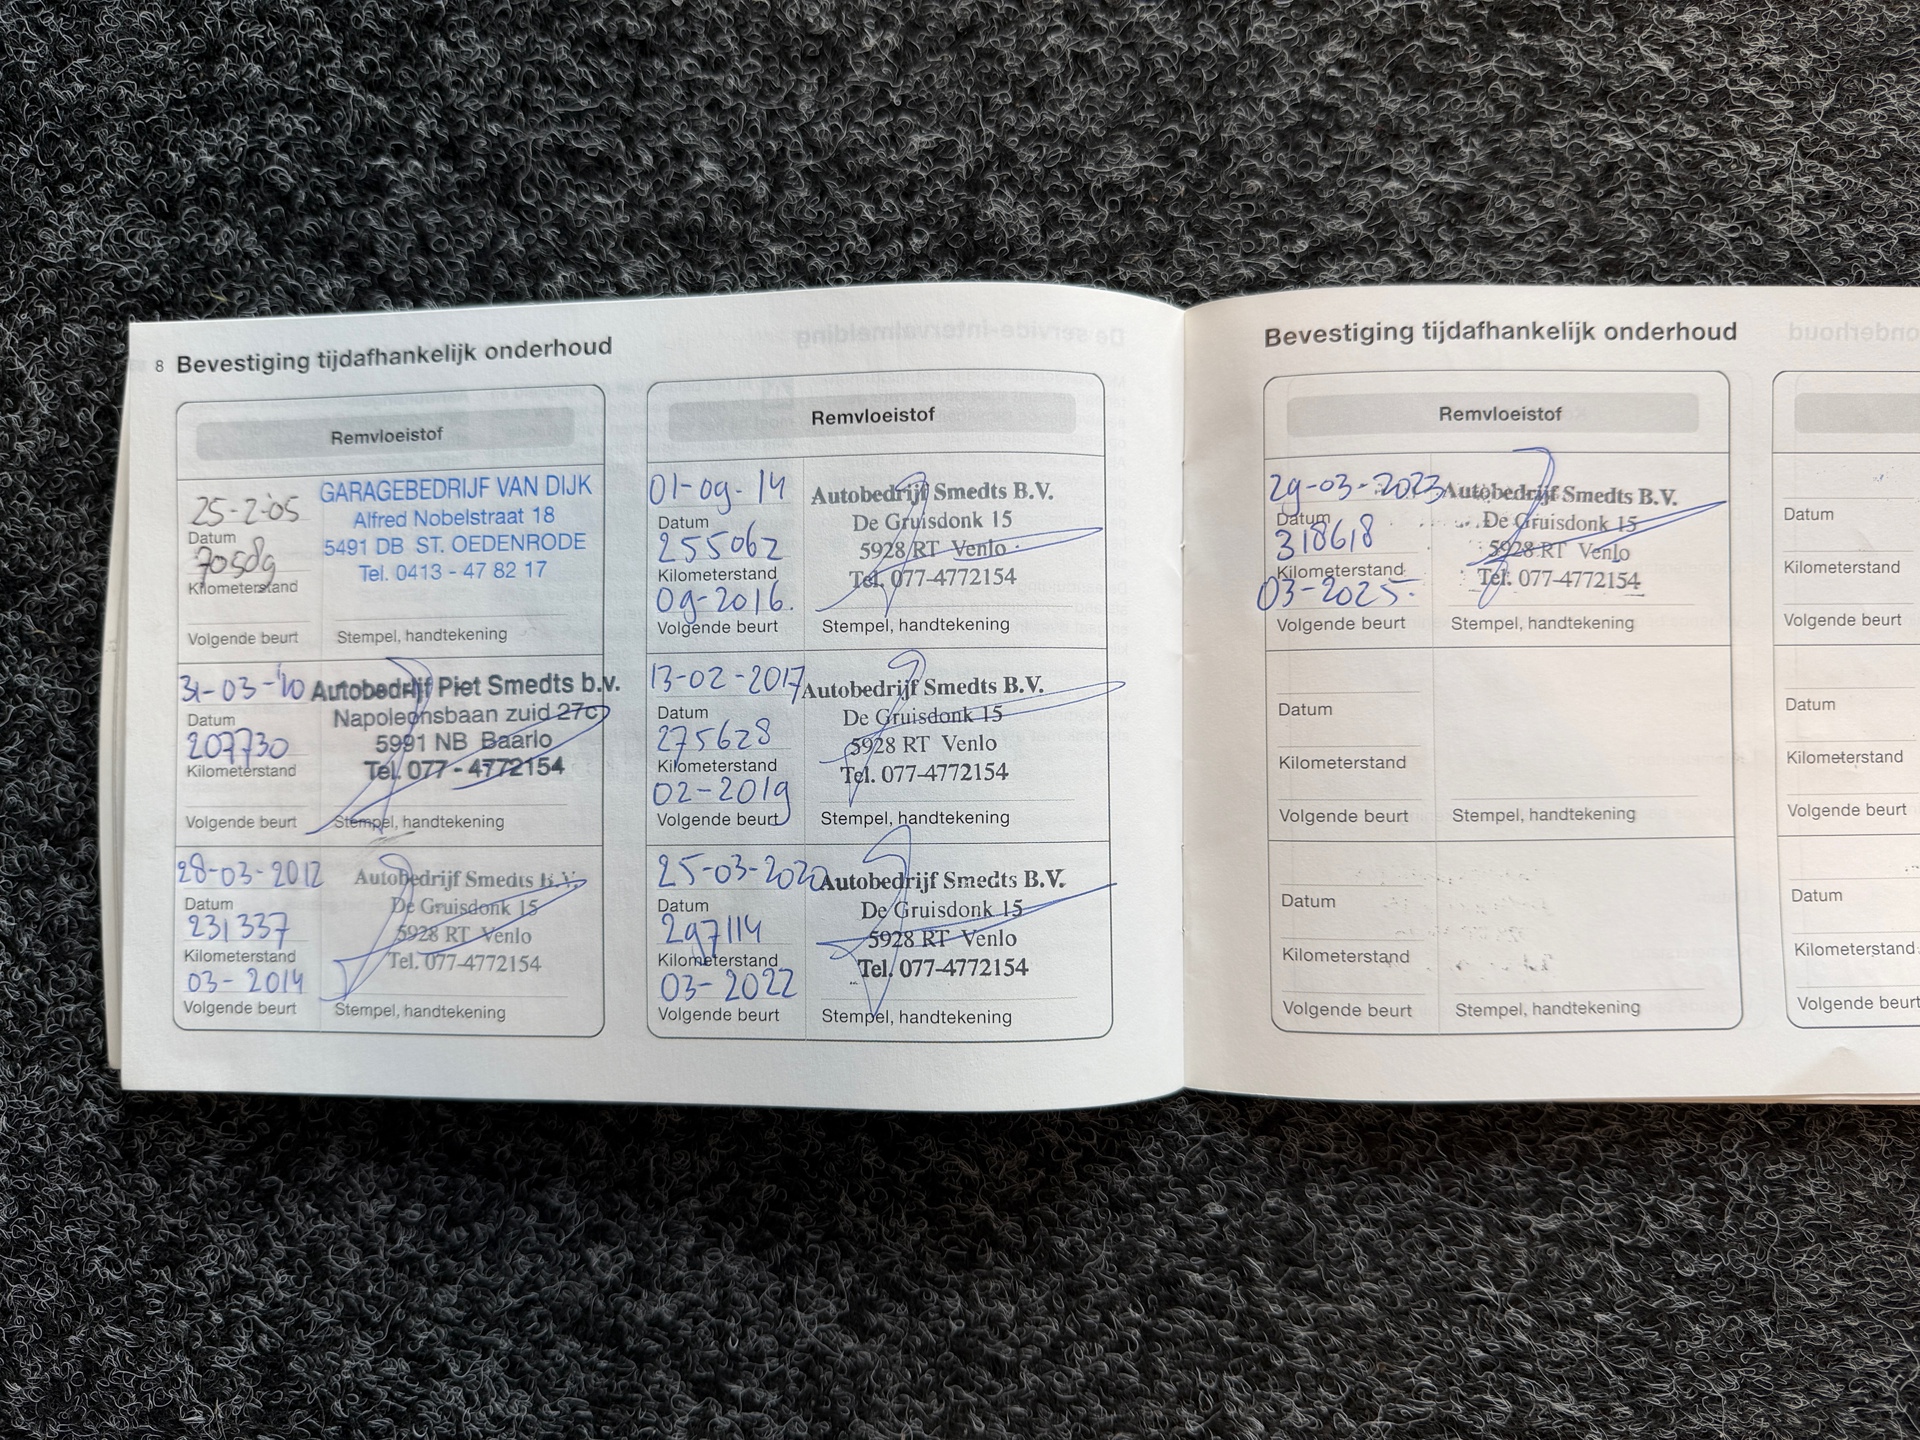 8 Bevestiging tijdafhankelijk onderhoud
Remvloeistof
25-2-05
Datum
70589
Kilometerstand
Volgende beurt
GARAGEBEDRIJF VAN DIJK
Alfred Nobelstraat 18
5491 DB ST. OEDENRODE
Tel. 0413 - 47 82 17
Stempel, handtekening
31-03-'10
Datum
207730
Kilometerstand
Volgende beurt
Autobedrijf Piet Smedts b.v.
Napoleonsbaan zuid 27c
5991 NB Baarlo
Tel. 077 - 4772154
Stempel, handtekening
28-03-2012
Datum
231337
Kilometerstand
03-2014
Volgende beurt
Autobedrijf Smedts B.V.
De Gruisdonk 15
5928 RT Venlo
Tel. 077-4772154
Stempel, handtekening
Remvloeistof
01-09-14
Datum
255062
Kilometerstand
09-2016.
Volgende beurt
Autobedrijf Smedts B.V.
De Gruisdonk 15
5928 RT Venlo
Tel. 077-4772154
Stempel, handtekening
13-02-2017
Datum
275628
Kilometerstand
02-2019
Volgende beurt
Autobedrijf Smedts B.V.
De Gruisdonk 15
5928 RT Venlo
Tel. 077-4772154
Stempel, handtekening
25-03-2020
Datum
297114
Kilometerstand
03-2022
Volgende beurt
Autobedrijf Smedts B.V.
De Gruisdonk 15
5928 RT Venlo
Tel. 077-4772154
Stempel, handtekening
Bevestiging tijdafhankelijk onderhoud
Remvloeistof
29-03-2023
Datum
318618
Kilometerstand
03-2025.
Volgende beurt
Autobedrijf Smedts B.V.
De Gruisdonk 15
5928 RT Venlo
Tel. 077-4772154
Stempel, handtekening
Datum
Kilometerstand
Volgende beurt
Stempel, handtekening
Datum
Kilometerstand
Volgende beurt
Stempel, handtekening
Datum
Kilometerstand
Volgende beurt
Datum
Kilometerstand
Volgende beurt
Datum
Kilometerstand
Volgende beurt